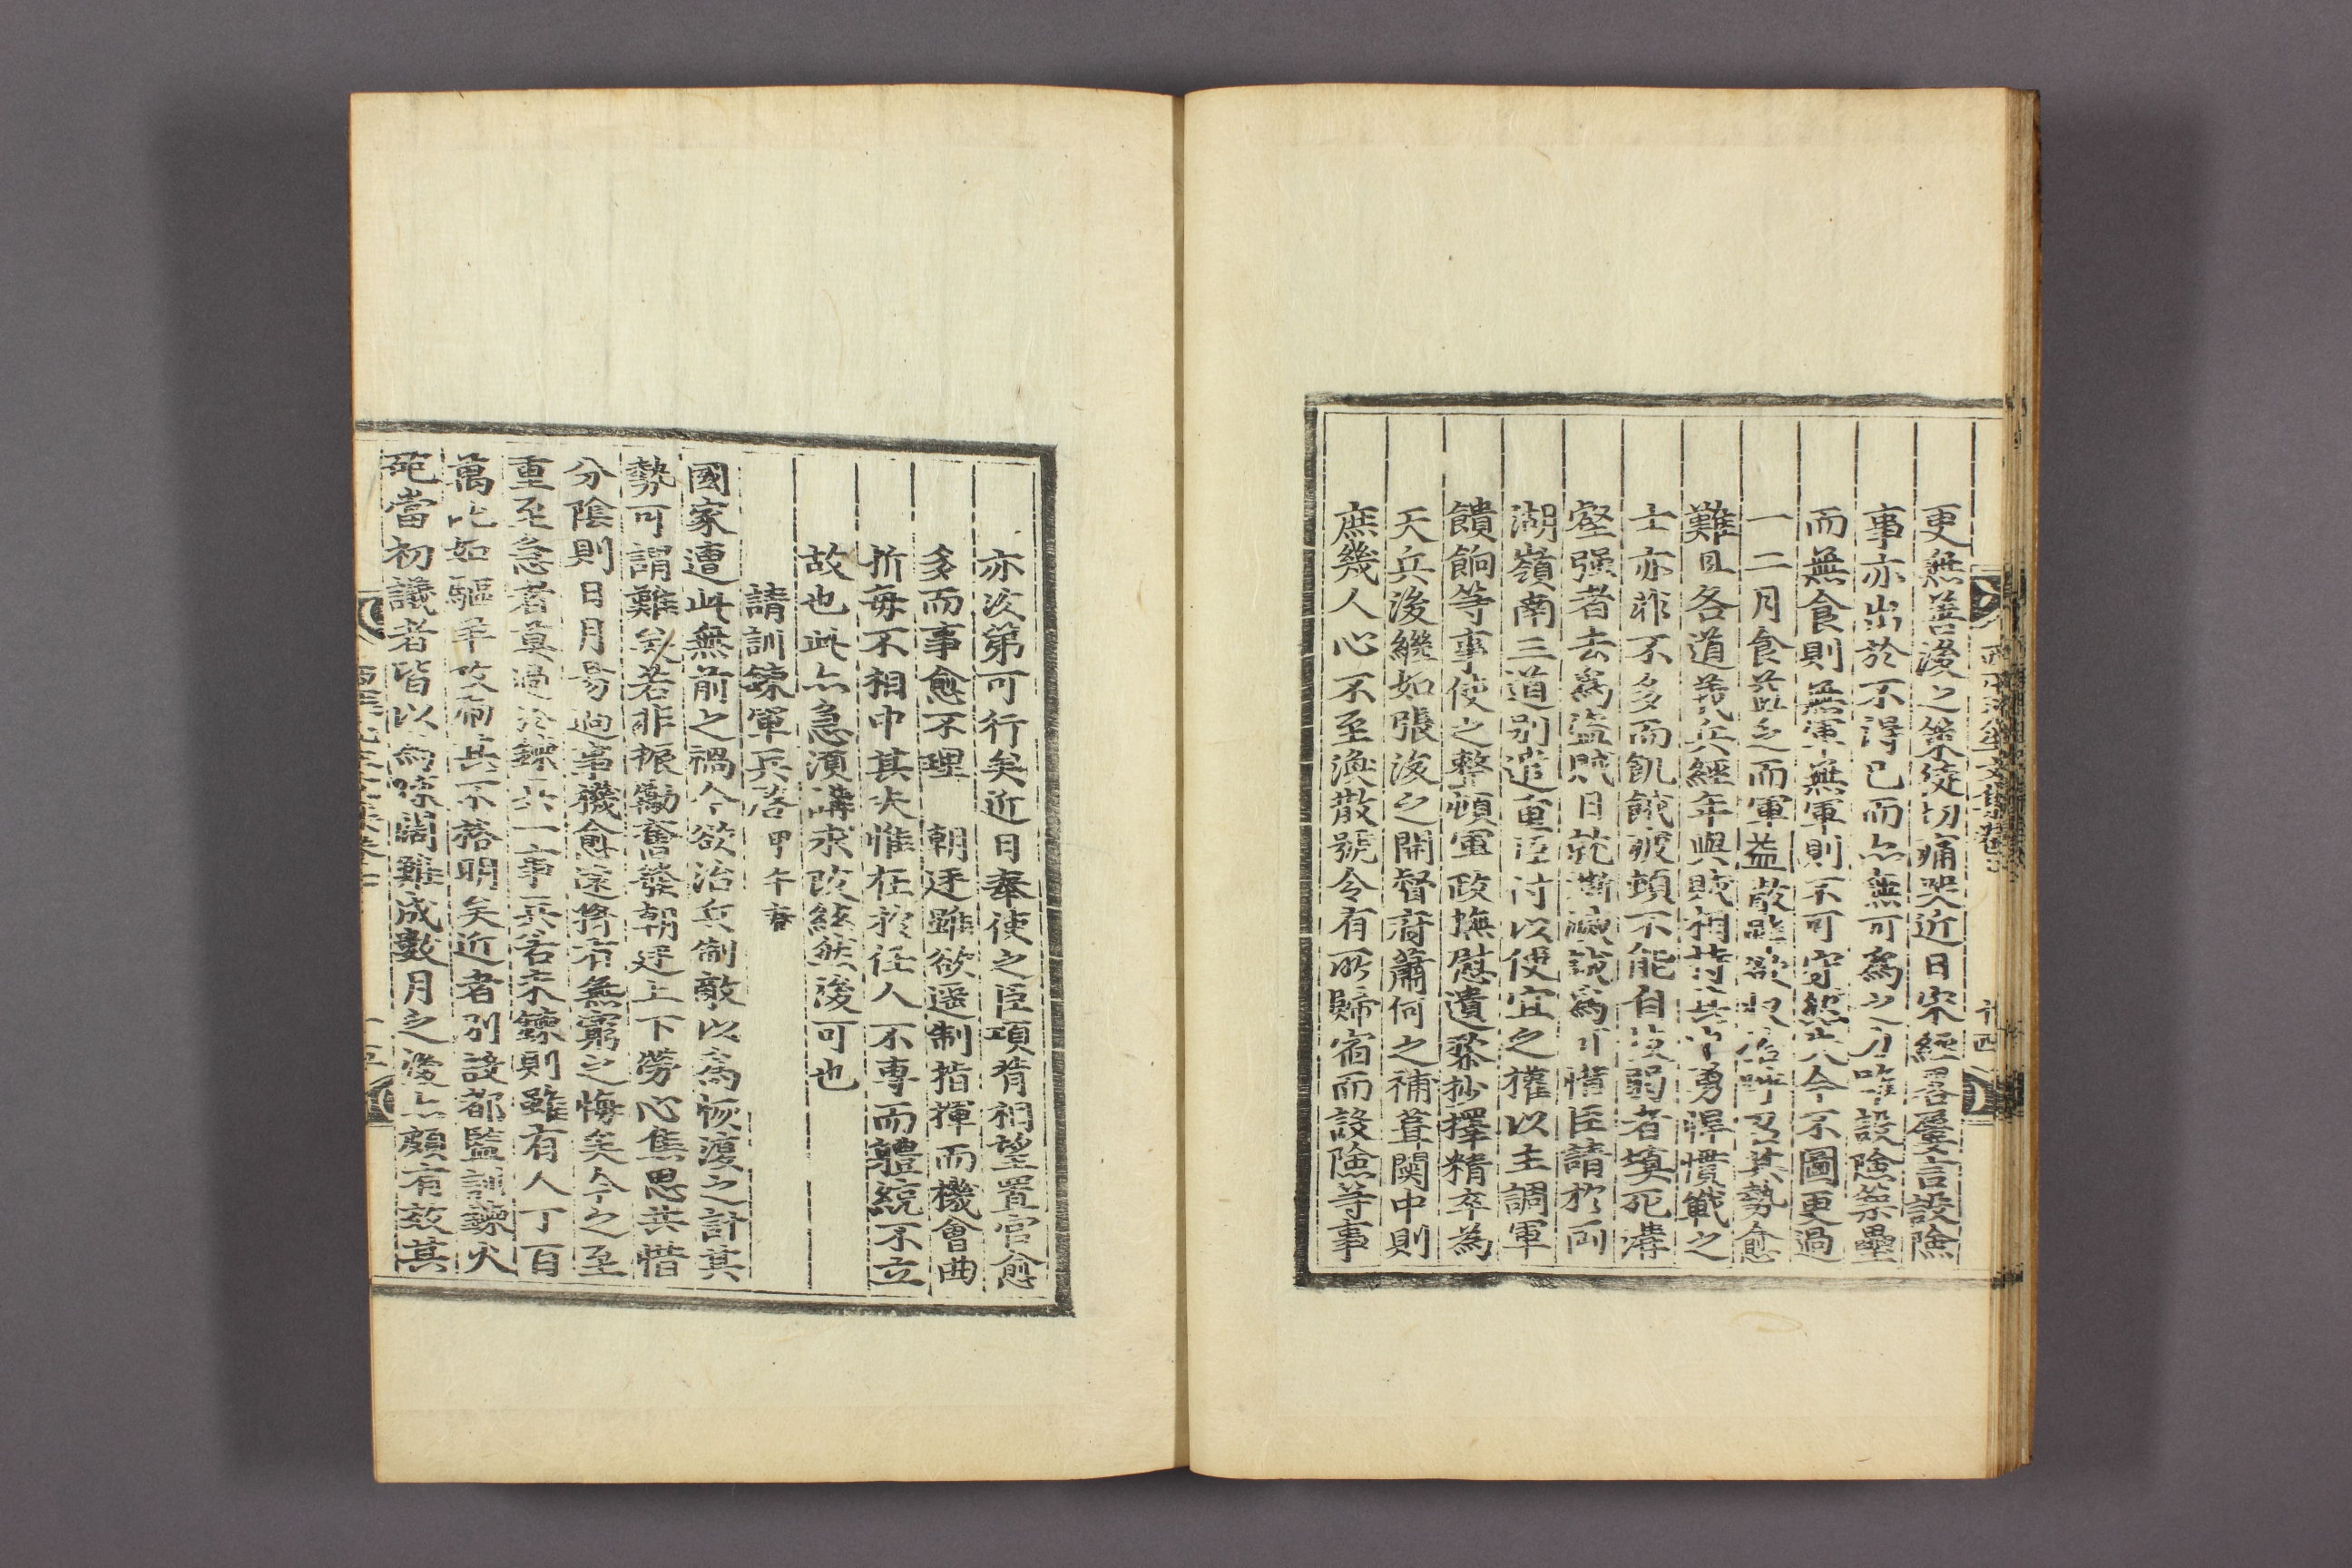 更無善後之策徒切痛哭近日宋經畧屢言設險
事亦出於不得已而亦無可爲之力唯設險築壘
而無食則無軍無軍則不可守然此今不圖更過
一二月食益乏而軍益散雖欲收召其勢愈
難且各道義兵經年與賊相持其中勇悍慣戰之
士亦非不多而飢餓疲頓不能自振弱者塡死溝
壑强者去爲盜賊日就澌滅誠爲可惜臣請於兩
湖嶺南三道別遣重臣付以便宜之權以主調軍
饋餉等事使之整頓軍政撫慰遺黎抄擇精卒爲
天兵後繼如張浚之開督府蕭何之補葺關中則
庶幾人心不至渙散號令有所歸宿而設險等事
亦次第可行矣近日奉使之臣項背相望置官愈
多而事愈不理 朝廷雖欲遥制指揮而機會曲
折每不相中其失惟在於任人不專而體統不立
故也此亦急須講求改絃然後可也
請訓鍊軍兵啓 甲午春
國家遭此無前之禍今欲治兵制敵以爲恢復之計其
勢可謂難矣若非振勵奮發朝廷上下勞心焦思共惜
分陰則日月易逝事機愈深將有無窮之悔矣今之至
重至急者莫過於鍊兵一事兵若未鍊則雖有人丁百
萬比如驅羊攻希其不格明矣近者別設都監訓鍊火
砲當初議者皆以爲闊難成數月之後亦頗有效其